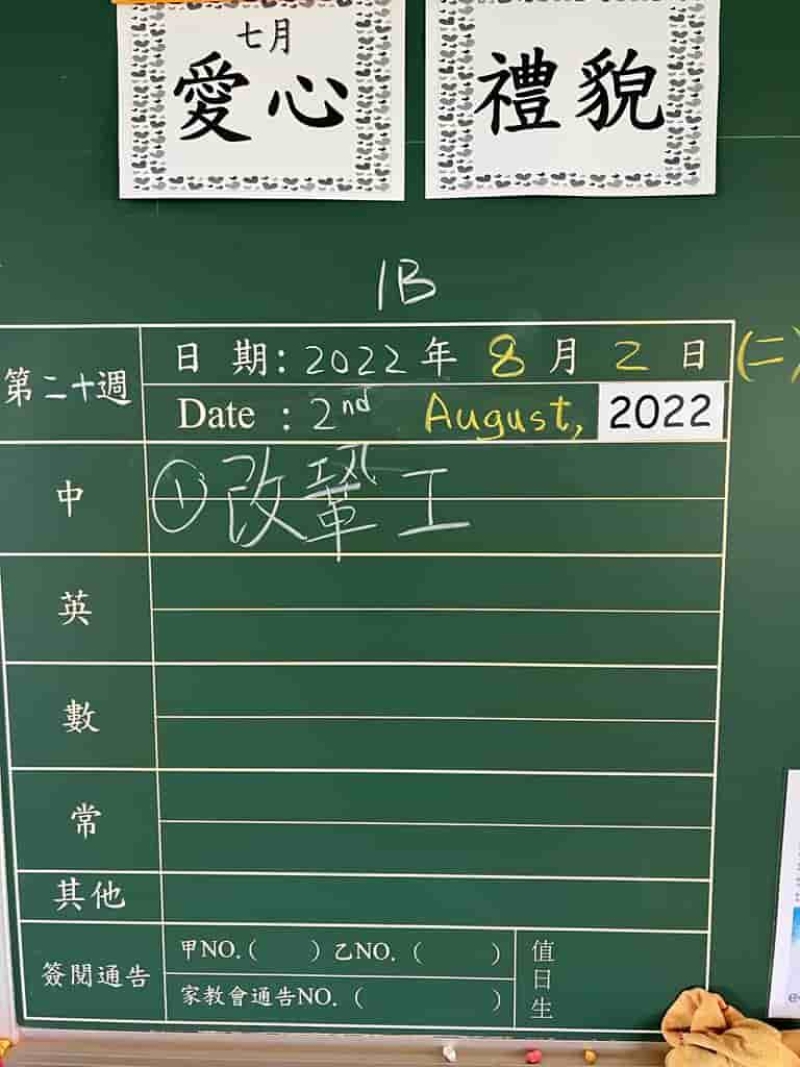 七月
愛心
禮貌
1B
第二十週
日 期: 2022 年 8 月 2 日 (二)
Date : 2nd August, 2022
中
① 改 工
英
數
常
其他
簽閱通告
甲NO.( ) 乙NO. ( )
家教會通告NO. ( )
值日生